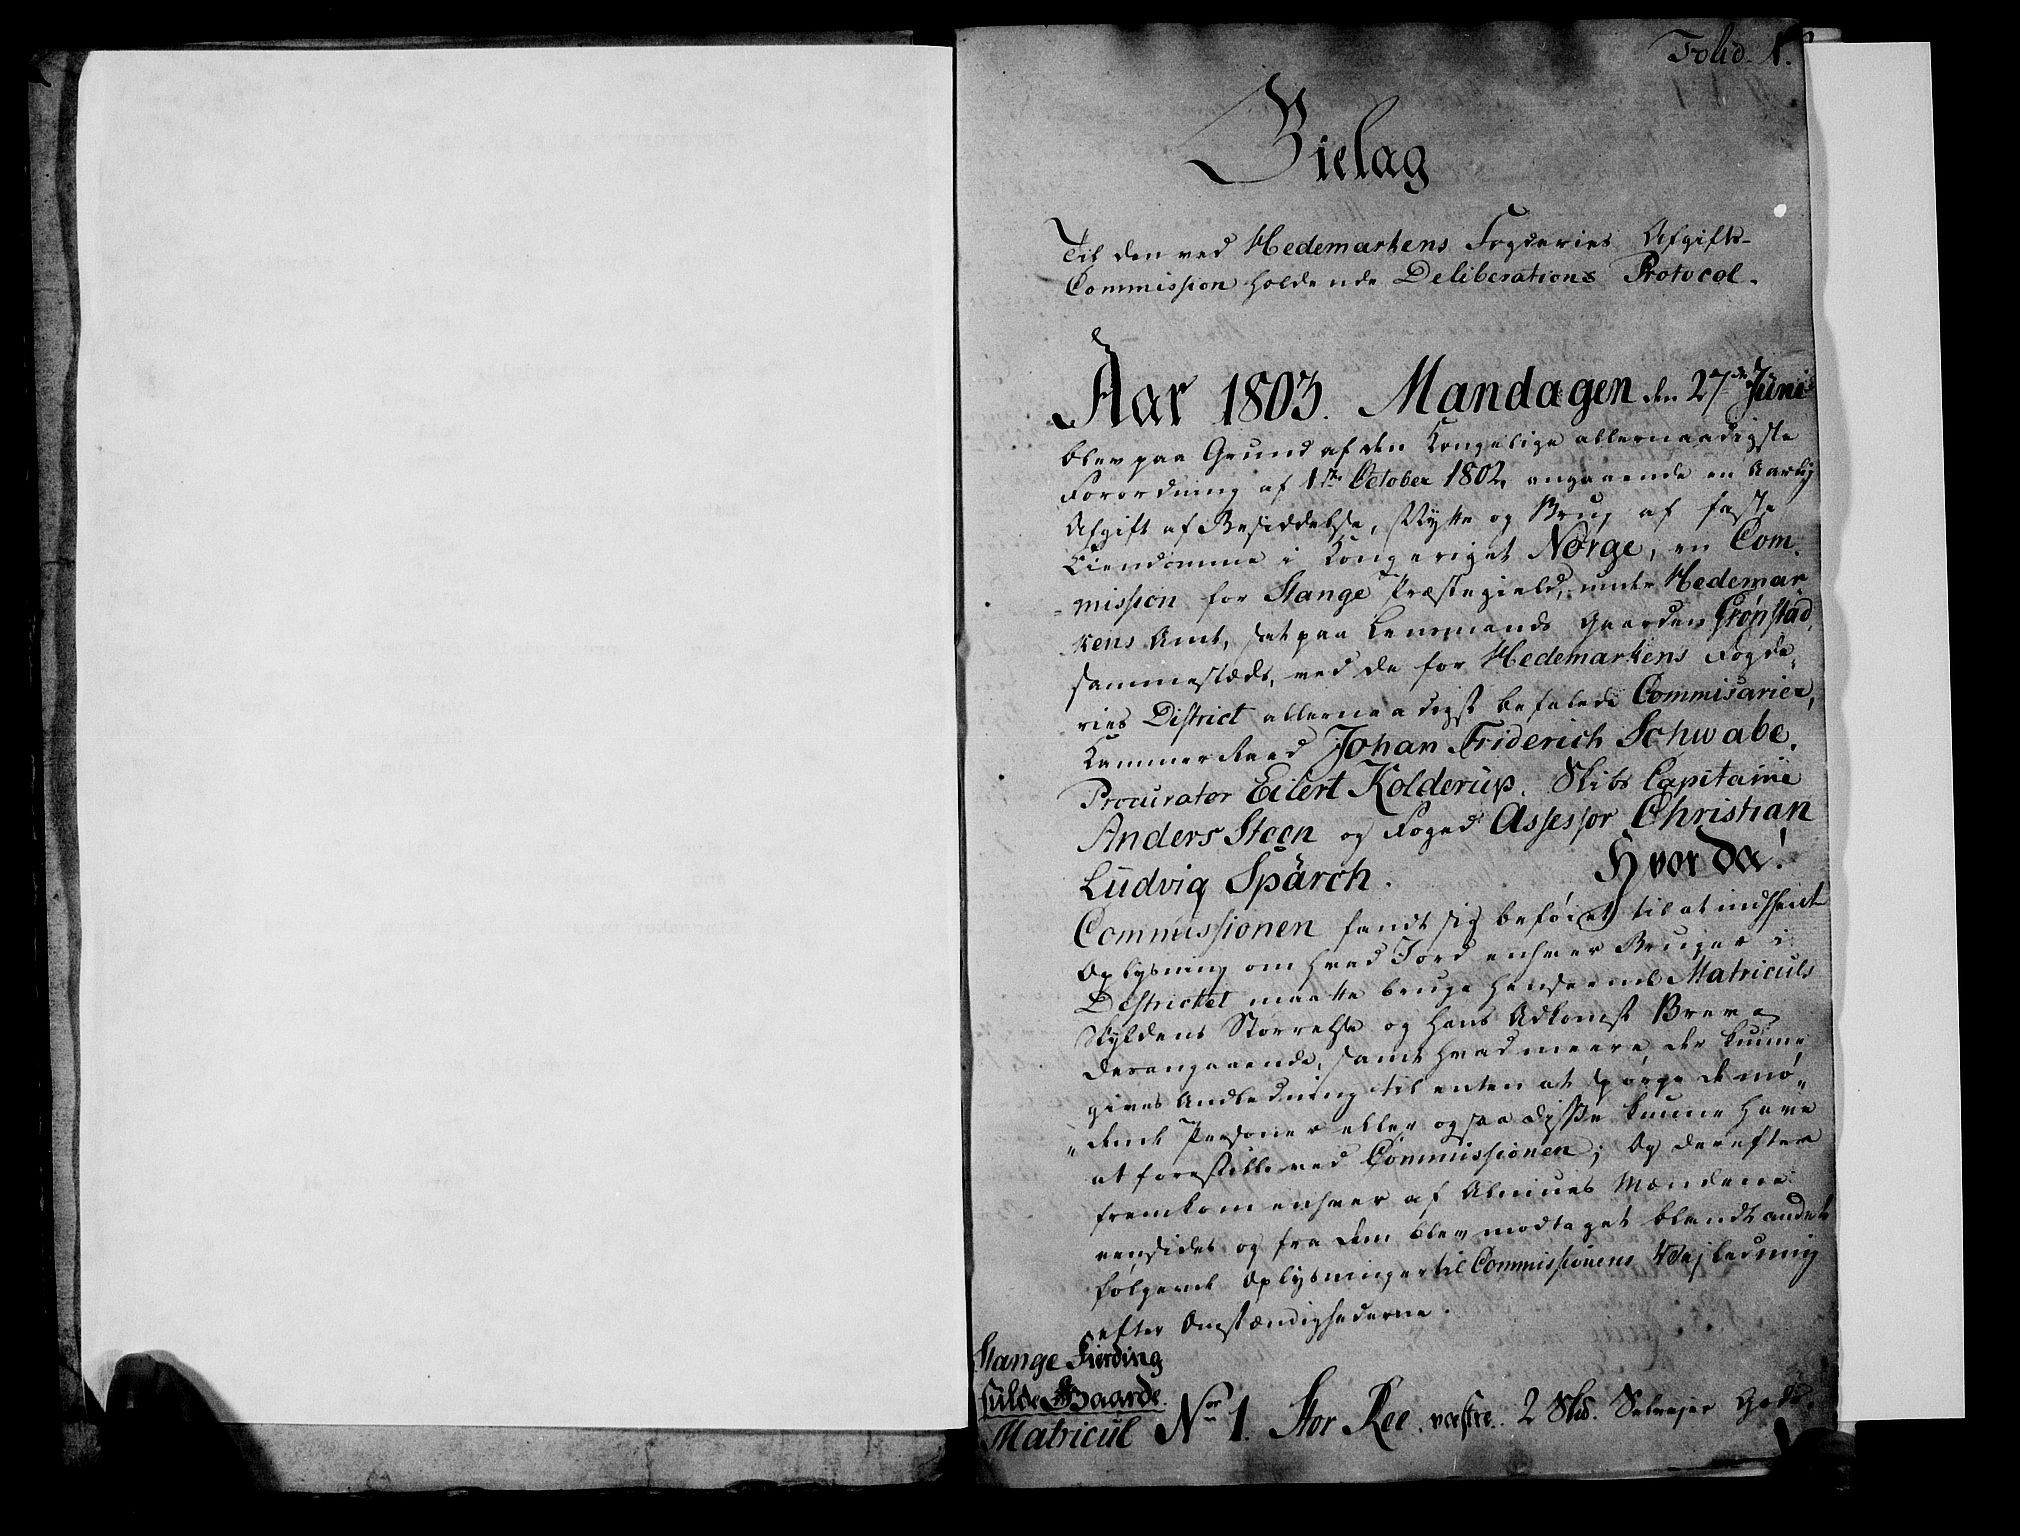 Folio 1.
Bielag
Til den ved Hedemarkens Fogderies Afgifts-
Commission holdende Deliberations Protocol.
Aar 1803. Mandagen den 27de Junii
blev paa Grund af den Kongelige allernaadigste
Forordning af 1te October 1802, angaaende en Aarlig
Afgift af Besiddelse, Nytte og Brug af faste
Eiendomme i Kongeriget Norge, en Com-
mission for Stange Præstegield, under Hedemar-
kens Amt, sat paa Lensmands Gaarden Grønstad
sammestæds, ved de for Hedemarkens Fogde-
ries District allernaadigst befalede Commisarier,
Kammer Raad Johan Friderich Schwabe,
Procurator Eilert Kolderup, Skibs Capitaine
Anders Steen og Foged Assessor Christian
Ludvig Spärch. Hvor da!
Commissionen fandt sig beføiet til at indhente
Oplysning om hvad Jord enhver Bruger i
Districtet maatte bruge henseende Matriculs
Skyldens Størrelse og hans Adkomst Breve
derangaaende, samt hvad meere, der kunne
gives Andledning til enten at spørge de mø-
dende Personer eller ogsaa disse kunne have
at forestille ved Commissionen; Og derefter
fremkom enhver af Almues Mændene
eensides og fra dem blev modtaget blandt andet
følgende Oplysninger til Commissionens Vejledning
efter Omstændighederne.
Stange Fierding
fulde Gaarde.
Matricul Nor 1. Stor Ree, vestre. 2 Skd. Selvejer Gods.